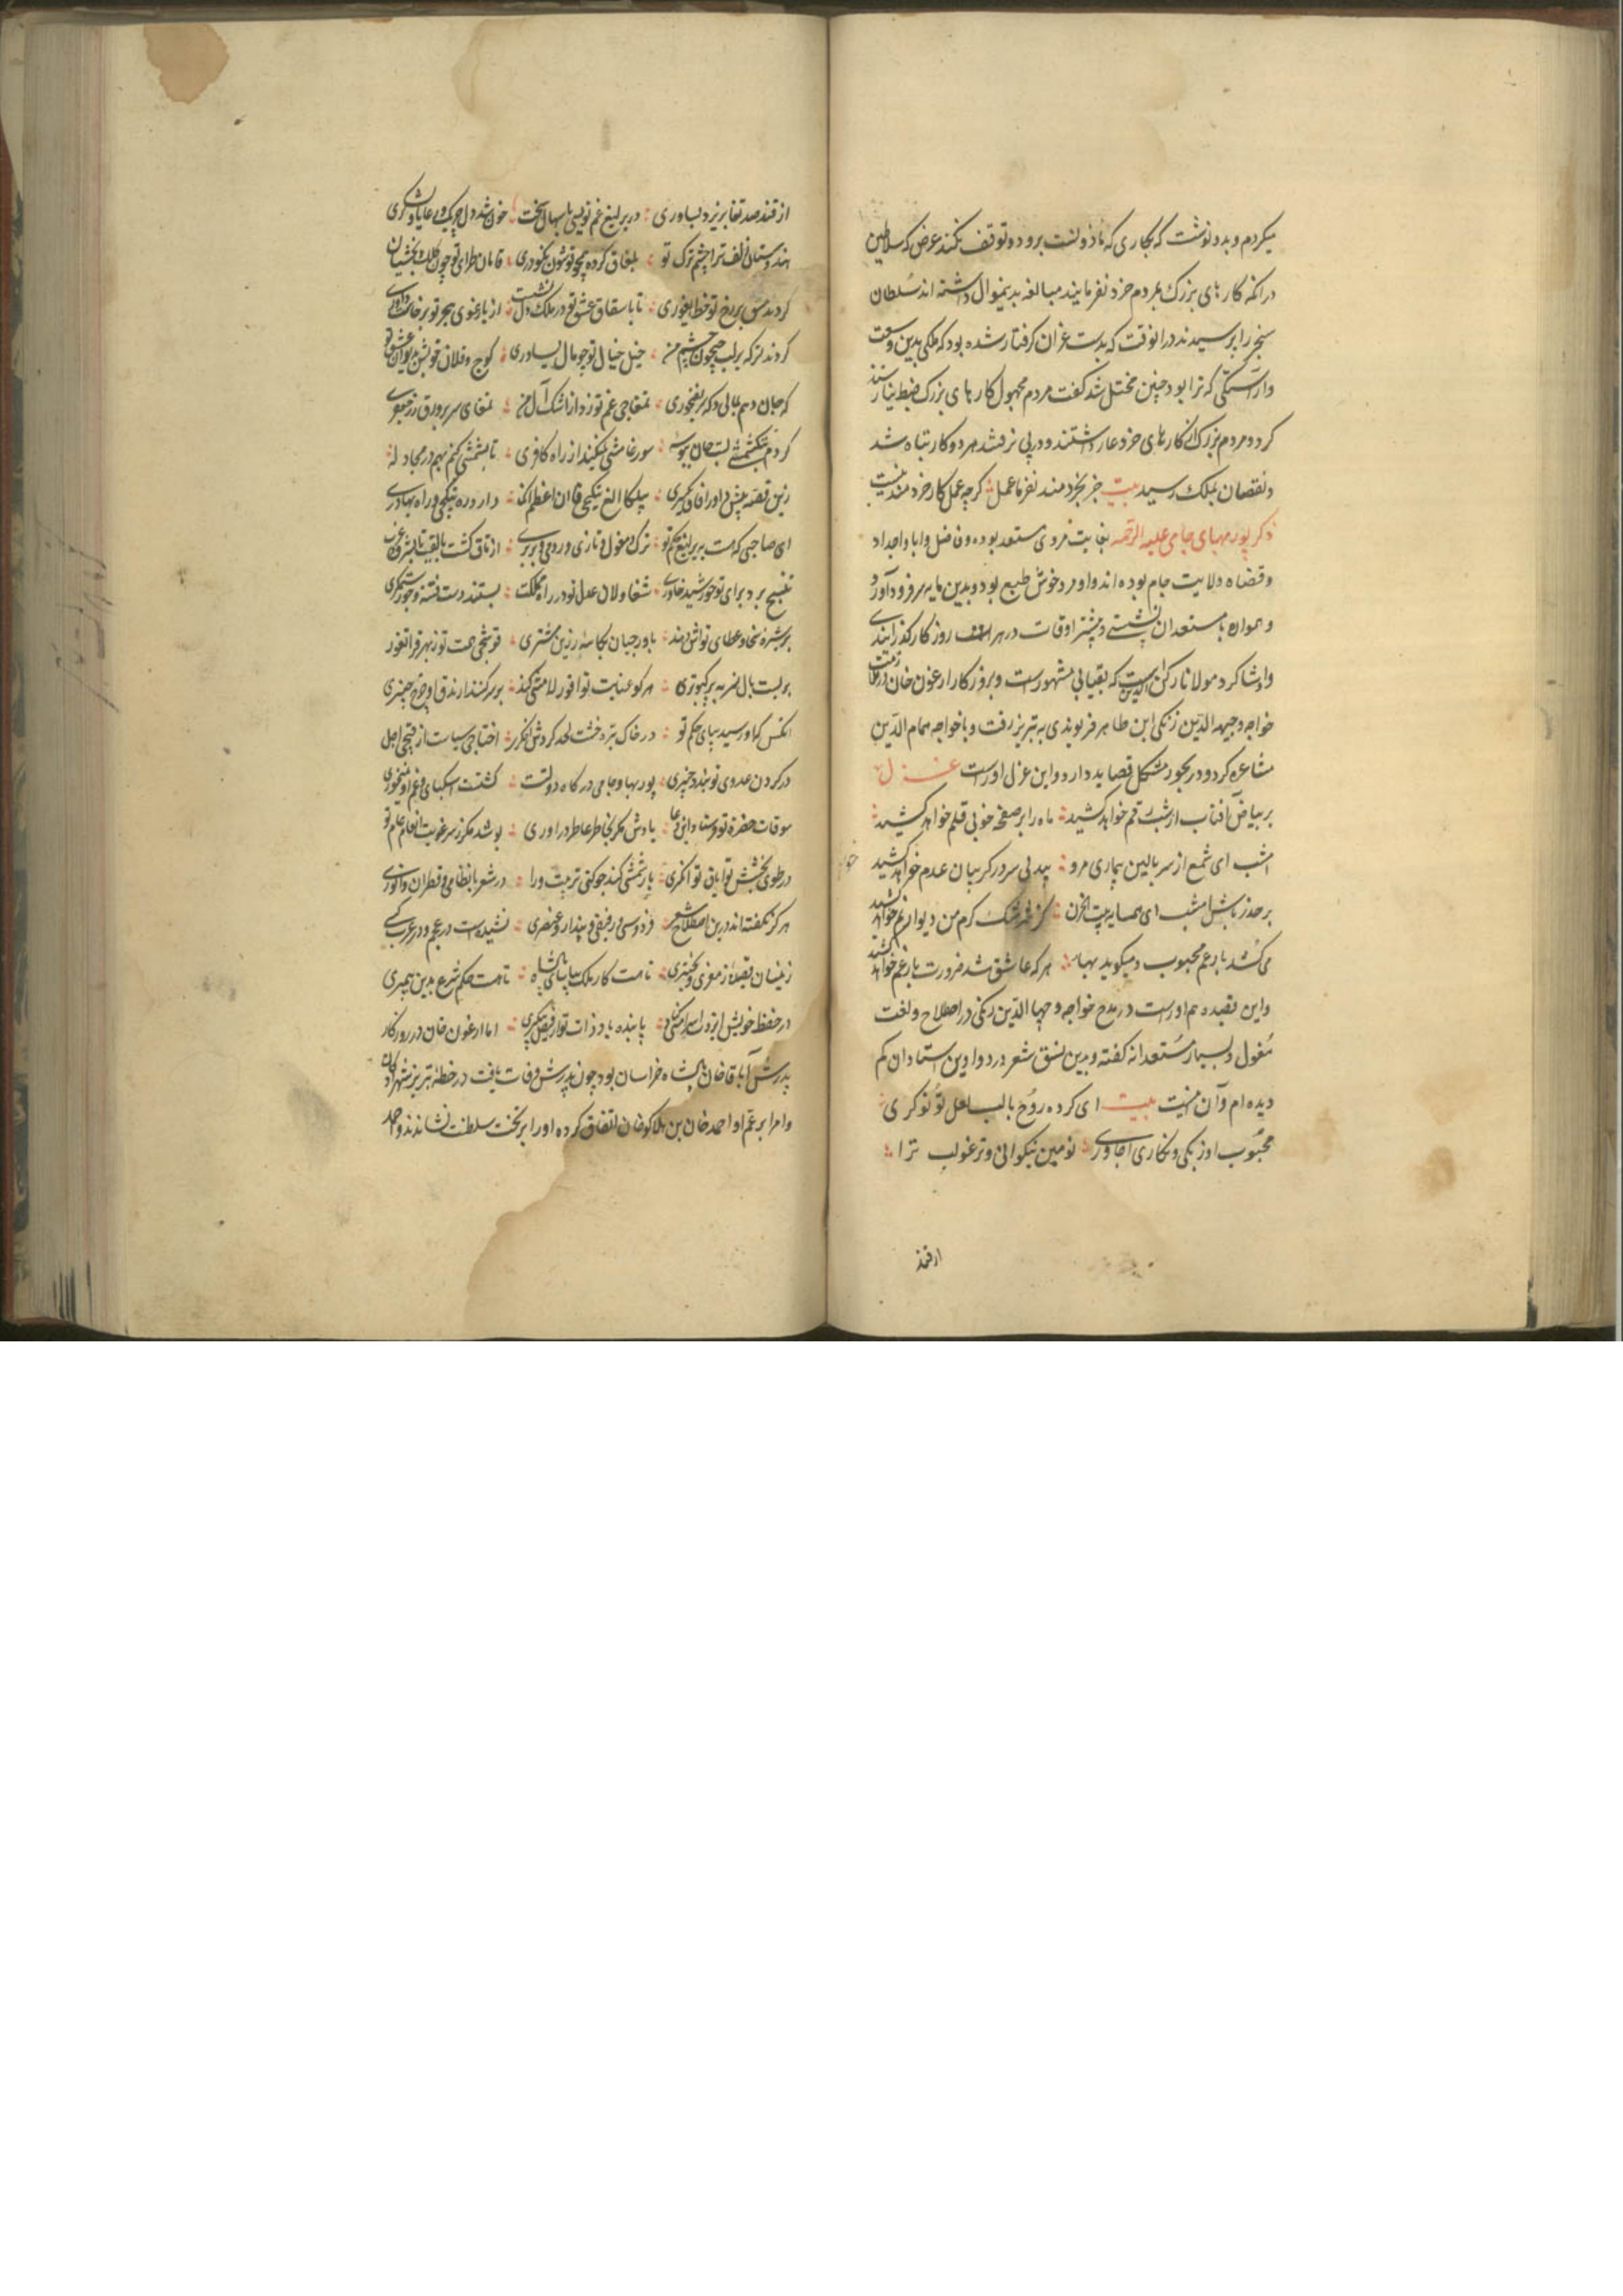 میکردم و بدو نوشت که بکاری که ماذونست برود و توقف نکند غرض که سلاطین
در آنکه کارهای بزرگ بمردم خرد نفرمایند مبالغه بدینموال داشته اند سُلطان
سنجر را پرسیدند در انوقت که بدست غزان گرفتار شده بود که ملکی بدین وسعت
و آراستگی که ترا بود چنین مختل شد گفت مردم مجهول کارهای بزرگ ضبط نیارستند
کرد و مردم بزرگ از کارهای خرد عار داشتند و در پی نرفتند هر دو کار تباه شد
و نقصان بملک رسید بیت جز بخردمند نفرما عمل گرچه عمل کار خردمند نیست
ذکر پور بهای جامی علیه الرحمه بغایت مردی مستعد بوده و فاضل و ابا و اجداد
و قضاه ولایت جام بوده اند و او مرد خوش طبع بود و بدین مایه سر فرود آورد
و همواره با مستعدان نشستی و بیشتر اوقات در هرات روزگار گذرانیدی
و او شاگرد مولانا رکن الدین است که بقبایی مشهورست و بروزگار ارغون خان در ملازمت
خواجه وجیه الدین زنگی ابن طاهر فریومدی به تبریز رفت و با خواجه همام الدین
مشاعره کرد و در بحور مشکل قصاید دارد و این غزل اوراست غزل
بر بیاض آفتاب از شب رقم خواهد کشید ماه را بر صفحه خوبی قلم خواهد کشید
امشب ای شمع از سر بالین بیماری مرو بیدلی سر در گریبان عدم خواهد کشید
بر حذر باش امشب ای همسایه بیت الحزن کز سرشک گرم من دیوار نم خواهد کشید
می کشد بار غم محبوب و میگوید بها هر که عاشق شد ضرورت بار غم خواهد کشید
و این قصیده هم اوراست در مدح خواجه وجیه الدین زنگی در اصطلاح و لغت
مُغول و بسیار مُستعدانه گفته و بدین نسق شعر در دواوین استادان کم
دیده ام و آن اینست بیت ای کرده روح با لب لعل تو نوکری
محبوب اوزبکی و نگاری اجاوری نومین نیکوانی و ترغو لب ترا
از قند
از قند صد تغا بریزد بساوری در یرلیغ غم تو بسی پاسبهای سخت خون شد دل چریک و رعایا و لشکری
هندوستان زلف ترا چشم ترک تو بلغاق کرده همچو قوشون نکودری قامان طرای تو چون کلک بخشیان
کردند مشق بر رخ تو خط ایغوری تا باسقاق عشق تو در ملک دل نشست از یارغوی هجر تو برخاست داوری
کردند ترکه بر لب جیحون چشم من خیل خیال تو چو مال یساوری کوچ و قلان خویش بدیوان عشق تو
که جان دهم بمالی و که سر بقبجوری تمغاجی غم تو زد از اشک آل من تمغای سر بر ورق زر جعفری
کردم تکشمشی لبت جان ببوسه سورغامشی نکیند از راه کافری تا تبشمشی کنم بهم در مجاد له
زین قصه پیش داور آفاق یکسری بیلکا الغ بیتکچی قاان اعظم آنکه دارد ره نیکچی و راه بهادری
ای صاحبی که هست بیرلیغ حکم تو ترک و مغول و تازی و رومی و بربری از تاق کشت بالغت تا بشرق و غرب
تنسیخ برد برای تو خورشید خاوری شقاولان عدل تو در راه مملکت بستند دست فتنه و جور ستمگری
بر شیره سخا و عطای تو اش دهند باورجیان بکاسه زرین مشتری قوشجی همت تو ز بهر قراتغور
بر بست بال نسر به پر کبوتری هر کو عنایت تو اقورلامشی کند بر سر کند ارندق او چرخ چنبری
انکس که او رسید بپای حکم تو در خاک تیره خشت لحد کردش لنگر اختاجی سیاست از قمچی اجل
در گردن عدوی تو بندد چنبری پور بها و جامی در گاه دولتت گشتست اسکبای و غم او میخوری
سوقات حضرة تو فرستاد این دعا یادش مگر بخاطر عاطر درآوری پوشد مگر ز سرغویت انعام عام تو
در طوی بخشش تو ایاق تو انگری یارتمشی کند چو کنی تربیت ورا در شعر با نظامی و قطران و انوری
هر گز نگفته اند درین اصطلاح شعر فردوسی و رفیقی و پندار و عنصری نشنیده است در عجم و در عرب کسی
زینسان قصیده از معزی و بحتری تا هست کار ملک بیاسای پادشاه تا هست حکم شرع بدین پیمبری
در حفظ خویش ایزد اسرامشی کناد پاینده باد ذات تو از فیض کری اما ارغون خان در روزگار
پدرش اباقا خان پادشاه خراسان بود چون پدرش وفات یافت در خطه تبریز شهزادگان
و امرا بر عم او احمد خان بن هلاکو خان اتفاق کرده او را بر تخت سلطنت نشاندند و احمد